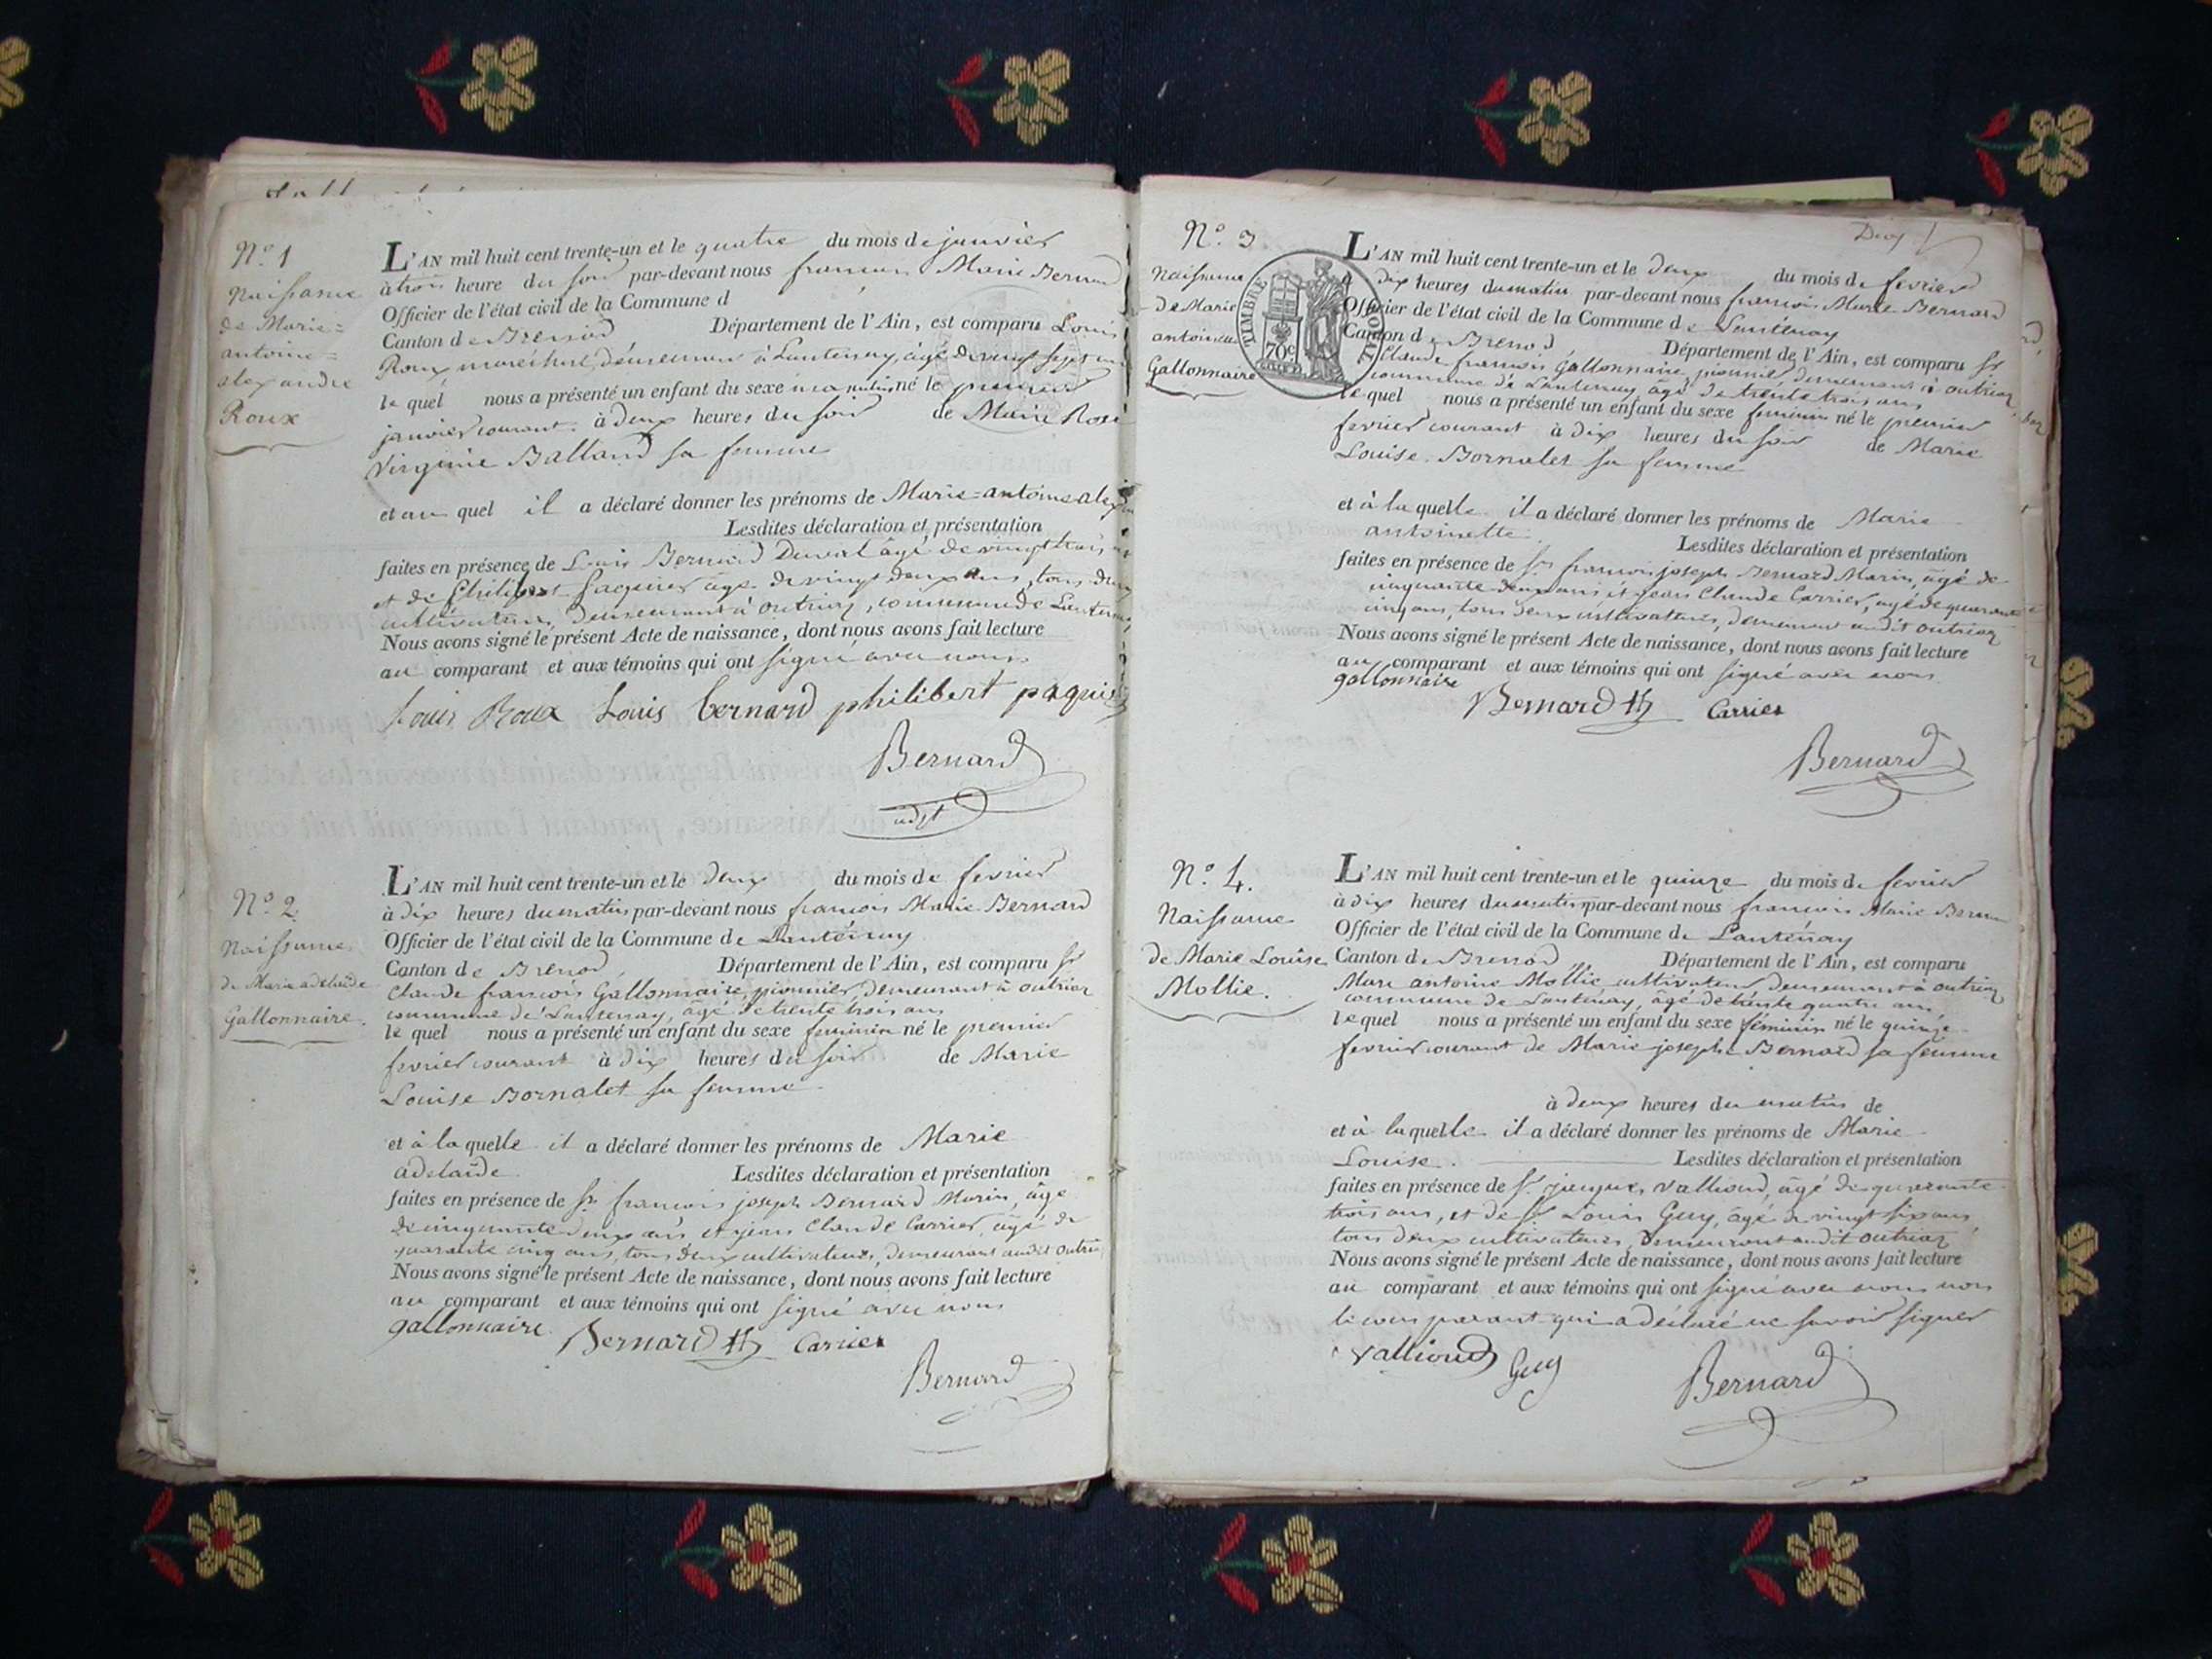 N.º 1
Naissance
de Marie=
antoine=
alexandre
Roux
L'AN mil huit cent trente-un et le quatre du mois de janvier
à trois heure du soir par-devant nous françois Marie Bernard
Officier de l'état civil de la Commune d
Canton de Brenod Département de l'Ain, est comparu Louis
Roux marechal, demeurant à Lantenay, âgé de vingt sept ans
lequel nous a présenté un enfant du sexe masculin né le premier
janvier courant à deux heures du soir de Marie Rose
Virginie Balland sa femme
et au quel il a déclaré donner les prénoms de Marie=antoine alex
Lesdites déclaration et présentation
faites en présence de Louis Bernard Duval âgé de vingt trois
et de Philibert Paquier âgé de vingt deux ans, tous deux
cultivateurs, demeurant à Outriaz, commune de Lantenay
Nous avons signé le présent Acte de naissance, dont nous avons fait lecture
au comparant et aux témoins qui ont signé avec nous
Louis Roux Louis bernard philibert paquie
Bernard
adjt
N.º 2
Naissance
de Marie adelaïde
Gallonnaire.
L'AN mil huit cent trente-un et le deux du mois de fevrier
à dix heures du matin par-devant nous françois Marie Bernard
Officier de l'état civil de la Commune de Lanténay
Canton de Brenod Département de l'Ain, est comparu Sr
Claude françois Gallonnaire, pionnier, demeurant à outriaz
commune de Lantenay, âgé de trente trois ans
lequel nous a présenté un enfant du sexe feminin né le premier
fevrier courant à dix heures du soir de Marie
Louise Bornalet sa femme
et à laquelle il a déclaré donner les prénoms de Marie
adelaïde Lesdites déclaration et présentation
faites en présence de Sr. françois joseph Bernard Marin, âgé
de cinquante deux ans et jean Claude Carrier, âgé de
quarante cinq ans, tous deux cultivateurs, demeurant audit outri
Nous avons signé le présent Acte de naissance, dont nous avons fait lecture
au comparant et aux témoins qui ont signé avec nous
gallonnaire Bernard Carrier
Bernard
Deux
N.º 3
Naissance
de Marie
antoinette
Gallonnaire
TIMBRE ROYAL
70c
L'AN mil huit cent trente-un et le deux du mois de fevrier
à dix heures du matin par-devant nous françois Marie Bernard
Officier de l'état civil de la Commune de Lantenay
Canton de Brenod Département de l'Ain, est comparu Sr
Claude françois Gallonnaire, pionnier, demeurant à outriaz,
commune de Lantenay âgé de trente trois ans
lequel nous a présenté un enfant du sexe feminin né le premier
fevrier courant à dix heures du soir de Marie
Louise Bornalet sa femme
et à laquelle il a déclaré donner les prénoms de Marie
antoinette Lesdites déclaration et présentation
faites en présence de Sr. françois joseph Bernard Marin, âgé de
cinquante deux ans et jean Claude Carrier, âgé de quarante
cinq ans, tous deux cultivateurs, demeurant audit outriaz
Nous avons signé le présent Acte de naissance, dont nous avons fait lecture
au comparant et aux témoins qui ont signé avec nous
gallonnaire
Bernard Carrier
Bernard
N.º 4.
Naissance
de Marie Louise
Mollie.
L'AN mil huit cent trente-un et le quinze du mois de fevrier
à dix heures du matin par-devant nous françois Marie Bernard
Officier de l'état civil de la Commune de Lantenay
Canton de Brenod Département de l'Ain, est comparu
Marc antoine Mollie cultivateur demeurant à outriaz
commune de Lantenay, âgé de trente quatre ans
lequel nous a présenté un enfant du sexe féminin né le quinze
fevrier courant de Marie josephe Bernard sa femme
à deux heures du matin de
et à laquelle il a déclaré donner les prénoms de Marie
Louise. Lesdites déclaration et présentation
faites en présence de Sr. jacques Valliond, âgé de quarante
trois ans, et de Sr Louis Guy, âgé de vingt six ans
tous deux cultivateurs, demeurant audit outriaz
Nous avons signé le présent Acte de naissance, dont nous avons fait lecture
au comparant et aux témoins qui ont signé avec nous non
le comparant qui a déclaré ne savoir signer
Valliond Guy Bernard